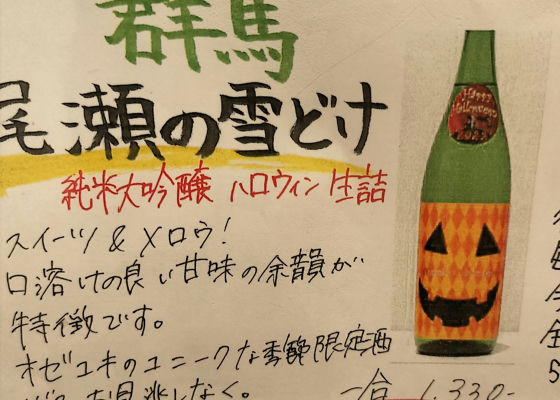 群馬
尾瀬の雪どけ
純米大吟醸 ハロウィン生詰
スイーツ & メロウ!
口溶けの良い甘味の余韻が
特徴です。
オゼユキのユニークな季節限定酒
お見逃しなく。
一合 1,330-
Happy
Halloween